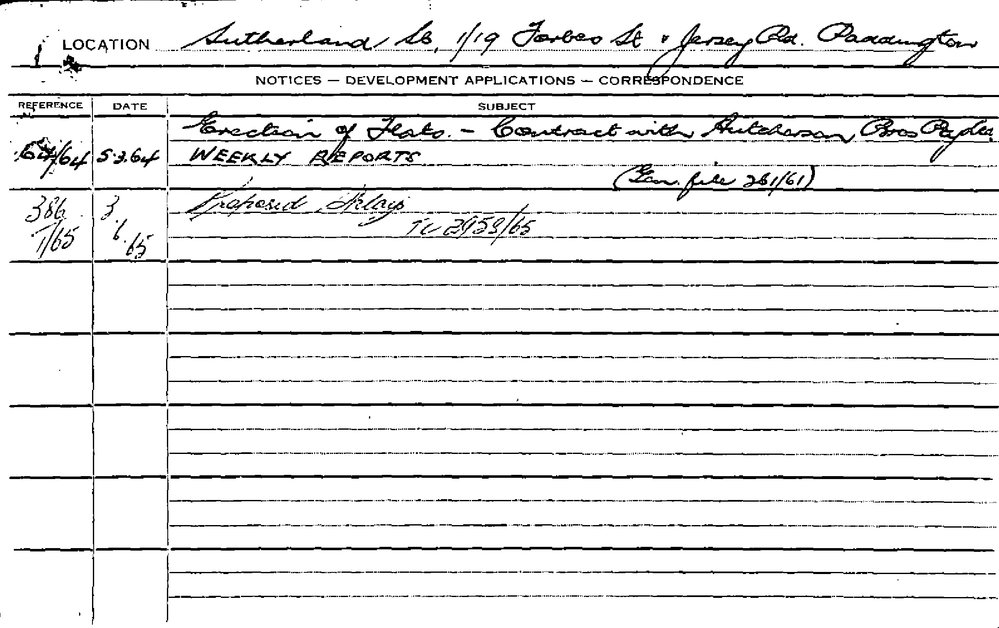 LOCATION Sutherland St, 1/19 Forbes St & Jersey Rd. Paddington
NOTICES — DEVELOPMENT APPLICATIONS — CORRESPONDENCE
REFERENCE DATE SUBJECT
Erection of Flats. – Contract with Hutcherson Bros P/L
64/64 5.3.64 WEEKLY REPORTS
(Gen. file 281/61)
386 3. Proposed
1/65 6. 65 TC 2959/65